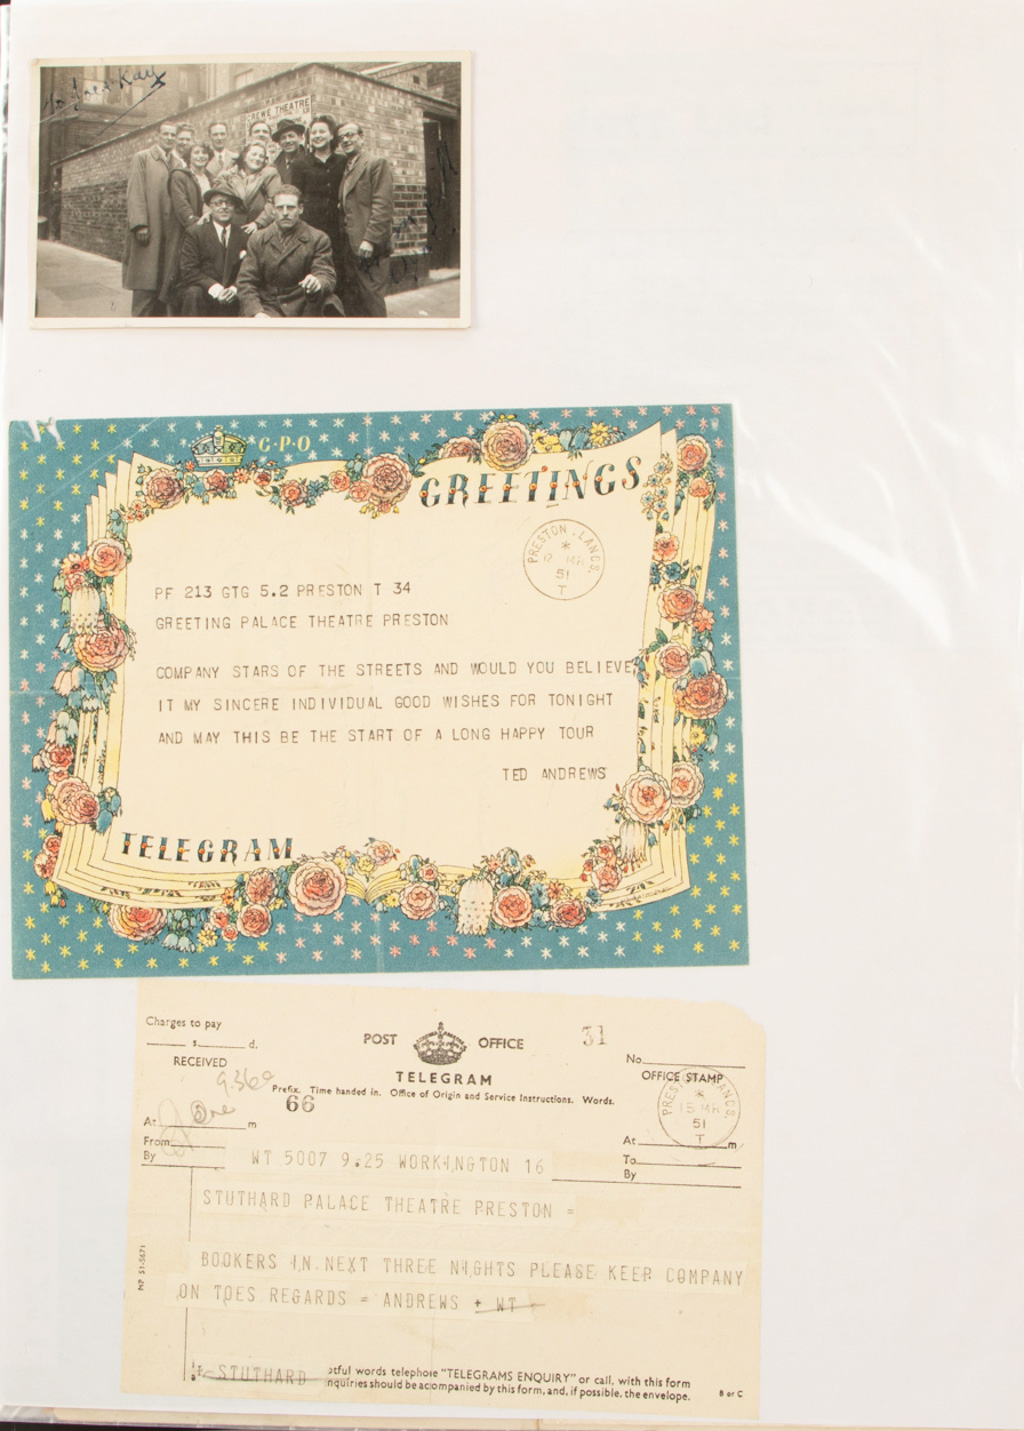 To Joe & Kay
CREWE THEATRE
G·P·O
GREETINGS
PRESTON . LANCS.
12 MR
51
T
PF 213 GTG 5.2 PRESTON T 34
GREETING PALACE THEATRE PRESTON
COMPANY STARS OF THE STREETS AND WOULD YOU BELIEVE
IT MY SINCERE INDIVIDUAL GOOD WISHES FOR TONIGHT
AND MAY THIS BE THE START OF A LONG HAPPY TOUR
TED ANDREWS
TELEGRAM
Charges to pay
s. d.
RECEIVED
POST OFFICE
TELEGRAM
31
No.
OFFICE STAMP
PRESTON LANCS.
15 MR
51
T
Prefix. Time handed in. Office of Origin and Service Instructions. Words.
66
At m
From
By
At m
To
By
WT 5007 9.25 WORKINGTON 16
STUTHARD PALACE THEATRE PRESTON =
BOOKERS IN NEXT THREE NIGHTS PLEASE KEEP COMPANY
ON TOES REGARDS = ANDREWS + WT
STUTHARD
words telephone "TELEGRAMS ENQUIRY" or call, with this form
nquiries should be accompanied by this form, and, if possible, the envelope.
B or C